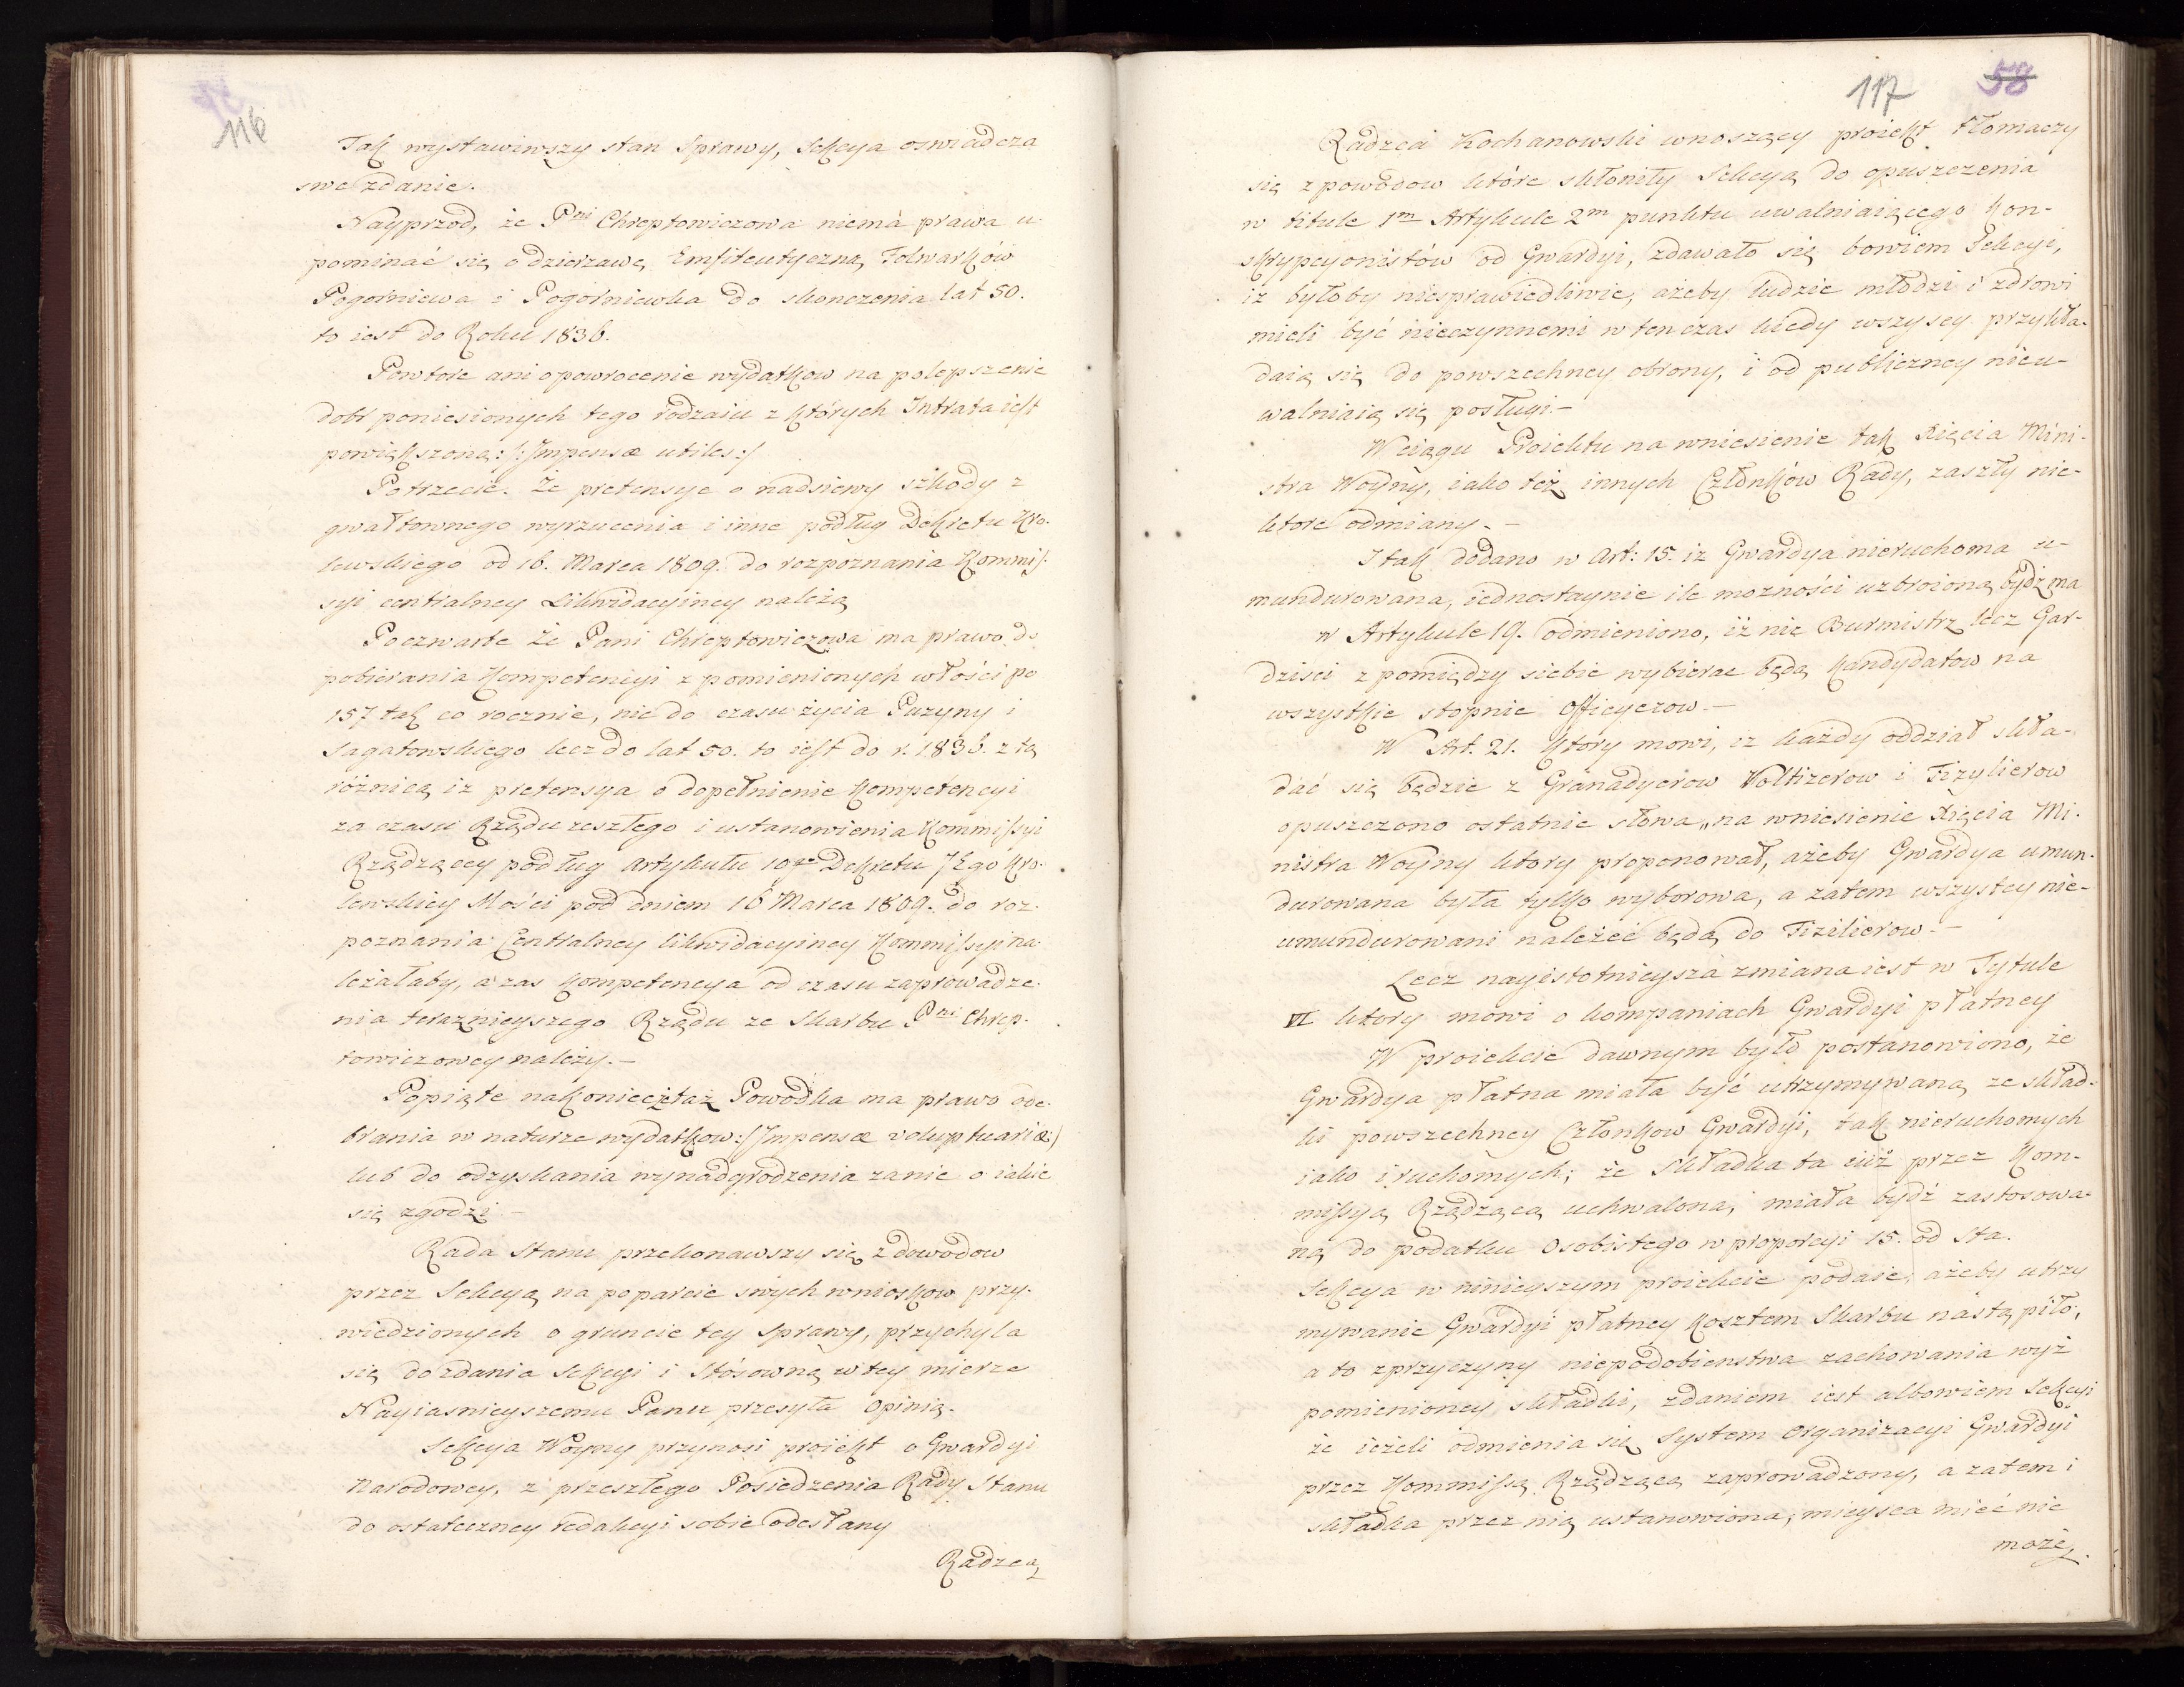 116
Tak wystawiwszy stan Sprawy, Sekcya oswiadcza
swe zdanie.
Nayprzod, że Pni Chreptowiczowa niema prawa u-
pominać się o dzierzawę Emfiteutyczną Folwarków
Pogorniewa i Pogorniewka do skonczenia lat 50.
to iest do Roku 1836.
Powtore ani o powrocenie wydatkow na polepszenie
dobr poniesionych tego rodzaiu z których Intrata iest
powiększona :/: Impensæ utiles :/
Potrzecie. Że pretensye o nadsiewy szkody z
gwałtownego wyrzucenia i inne podług Dekretu Kro-
lewskiego od 16. Marca 1809. do rozpoznania Kommis-
syi centralney Likwidacyiney należą
Poczwarte Że Pani Chreptowiczowa ma prawo do
pobierania Kompetencyi z pomienionych włości po
157 tal co rocznie, nie do czasu życia Puzyny i
Sagatowskiego lecz do lat 50. to iest do r. 1836. z tą
różnicą iz pretensya o dopełnienie Kompetencyi
za czasu Rządu zeszłego i ustanowienia Kommissyi
Rządzącey podług Artykułu 10go Dekretu JEgo Kro-
lewskiey Mości pod dniem 16 Marca 1809. do roz-
poznania Centralney likwidacyiney Kommissyi na-
leżałaby, a zas Kompetencya od czasu zaprowadze-
nia terazneyszego Rządu ze Skarbu Pni Chrep-
towiczowey należy.—
Popiąte nakoniec iż taż Powodka ma prawo ode-
brania w naturze wydatkow :/ Impensæ voluptuariæ :/
lub do odzyskania wynadgrodzenia zanie o iakie
się zgodzi.—
Rada Stanu przekonawszy się z dowodow
przez Sekcyą na poparcie swych wnioskow przy-
wiedzionych o gruncie tey sprawy, przychyla
się do zdania Sekcyi i Stósowną w tey mierze
Nayiasnieyszemu Panu przesyła Opinią.
Sekcya Woyny przynosi proiekt o Gwardyi
Narodowey, z przeszłego Posiedzenia Rady Stanu
do ostateczney redakcyi sobie odesłany
Radzca
117 58
Radzca Kochanowski wnoszący proiekt tłomaczy
się z powodow które skłoniły Sekcyą do opuszczenia
w titule 1m Artykule 2m punktu uwalniaiącego Kon-
skrypcyonistów od Gwardyi, zdawało się bowiem Sekcyi,
iz byłoby niesprawiedliwie, ażeby ludzie młodzi i zdrowi
mieli być nieczynnemi w ten czas kiedy wszyscy przykła-
daią się do powszechney obrony, i od publiczney nieu-
walniaią się posługi.—
W ciągu Proiektu na wniesienie tak Xięcia Mini-
stra Woyny, iako też innych Członków Rady, zaszły nie-
ktore odmiany.—
I tak dodano w Art: 15. iz Gwardya nieruchoma u-
mundurowana, iednostaynie ile mozności uzbroioną bydź ma
w Artykule 19. odmieniono, iż nie Burmistrz lecz Gar-
dzisci z pomiędzy siebie wybierac będą Kandydatow na
wszystkie stopnie Officyerow.—
W Art. 21. Ktory mowi, iz każdy oddział skła-
dać się będzie z Granadyerow Voltizerow i Fizylierow
opuszczono ostatnie słowa „na wniesienie Xięcia Mi-
nistra Woyny ktory proponował, ażeby Gwardya umun-
durowana była tylko wyborowa, a zatem wszystcy nie-
umundurowani należeć będą do Fizilierow.—
Lecz nayistotnieysza zmiana iest w Tytule
VI ktory mowi o kompaniach Gwardyi płatney
W proiekcie dawnym było postanowiono, że
Gwardya płatna miała być utrzymywaną ze skład-
ki powszechney Członkow Gwardyi, tak nieruchomych
iako i ruchomych; że Składka ta iuż przez Kom-
missyą Rządzącą uchwalona, miała bydź zastosowa-
ną do podatku Osobistego w proporcyi 15. od Sta.
Sekcya w ninieyszym proiekcie podaie, ażeby utrzy
mywanie Gwardyi płatney Kosztem Skarbu nastąpiło,
a to z przyczyny niepodobienstwa zachowania wyż
pomienioney składki, zdaniem iest albowiem Sekcyi
że ieżeli odmienia się System Organizacyi Gwardyi
przez Kommissą Rządzącą zaprowadzony, a zatem i
składka przez nią ustanowiona, mieysca mieć nie
może.